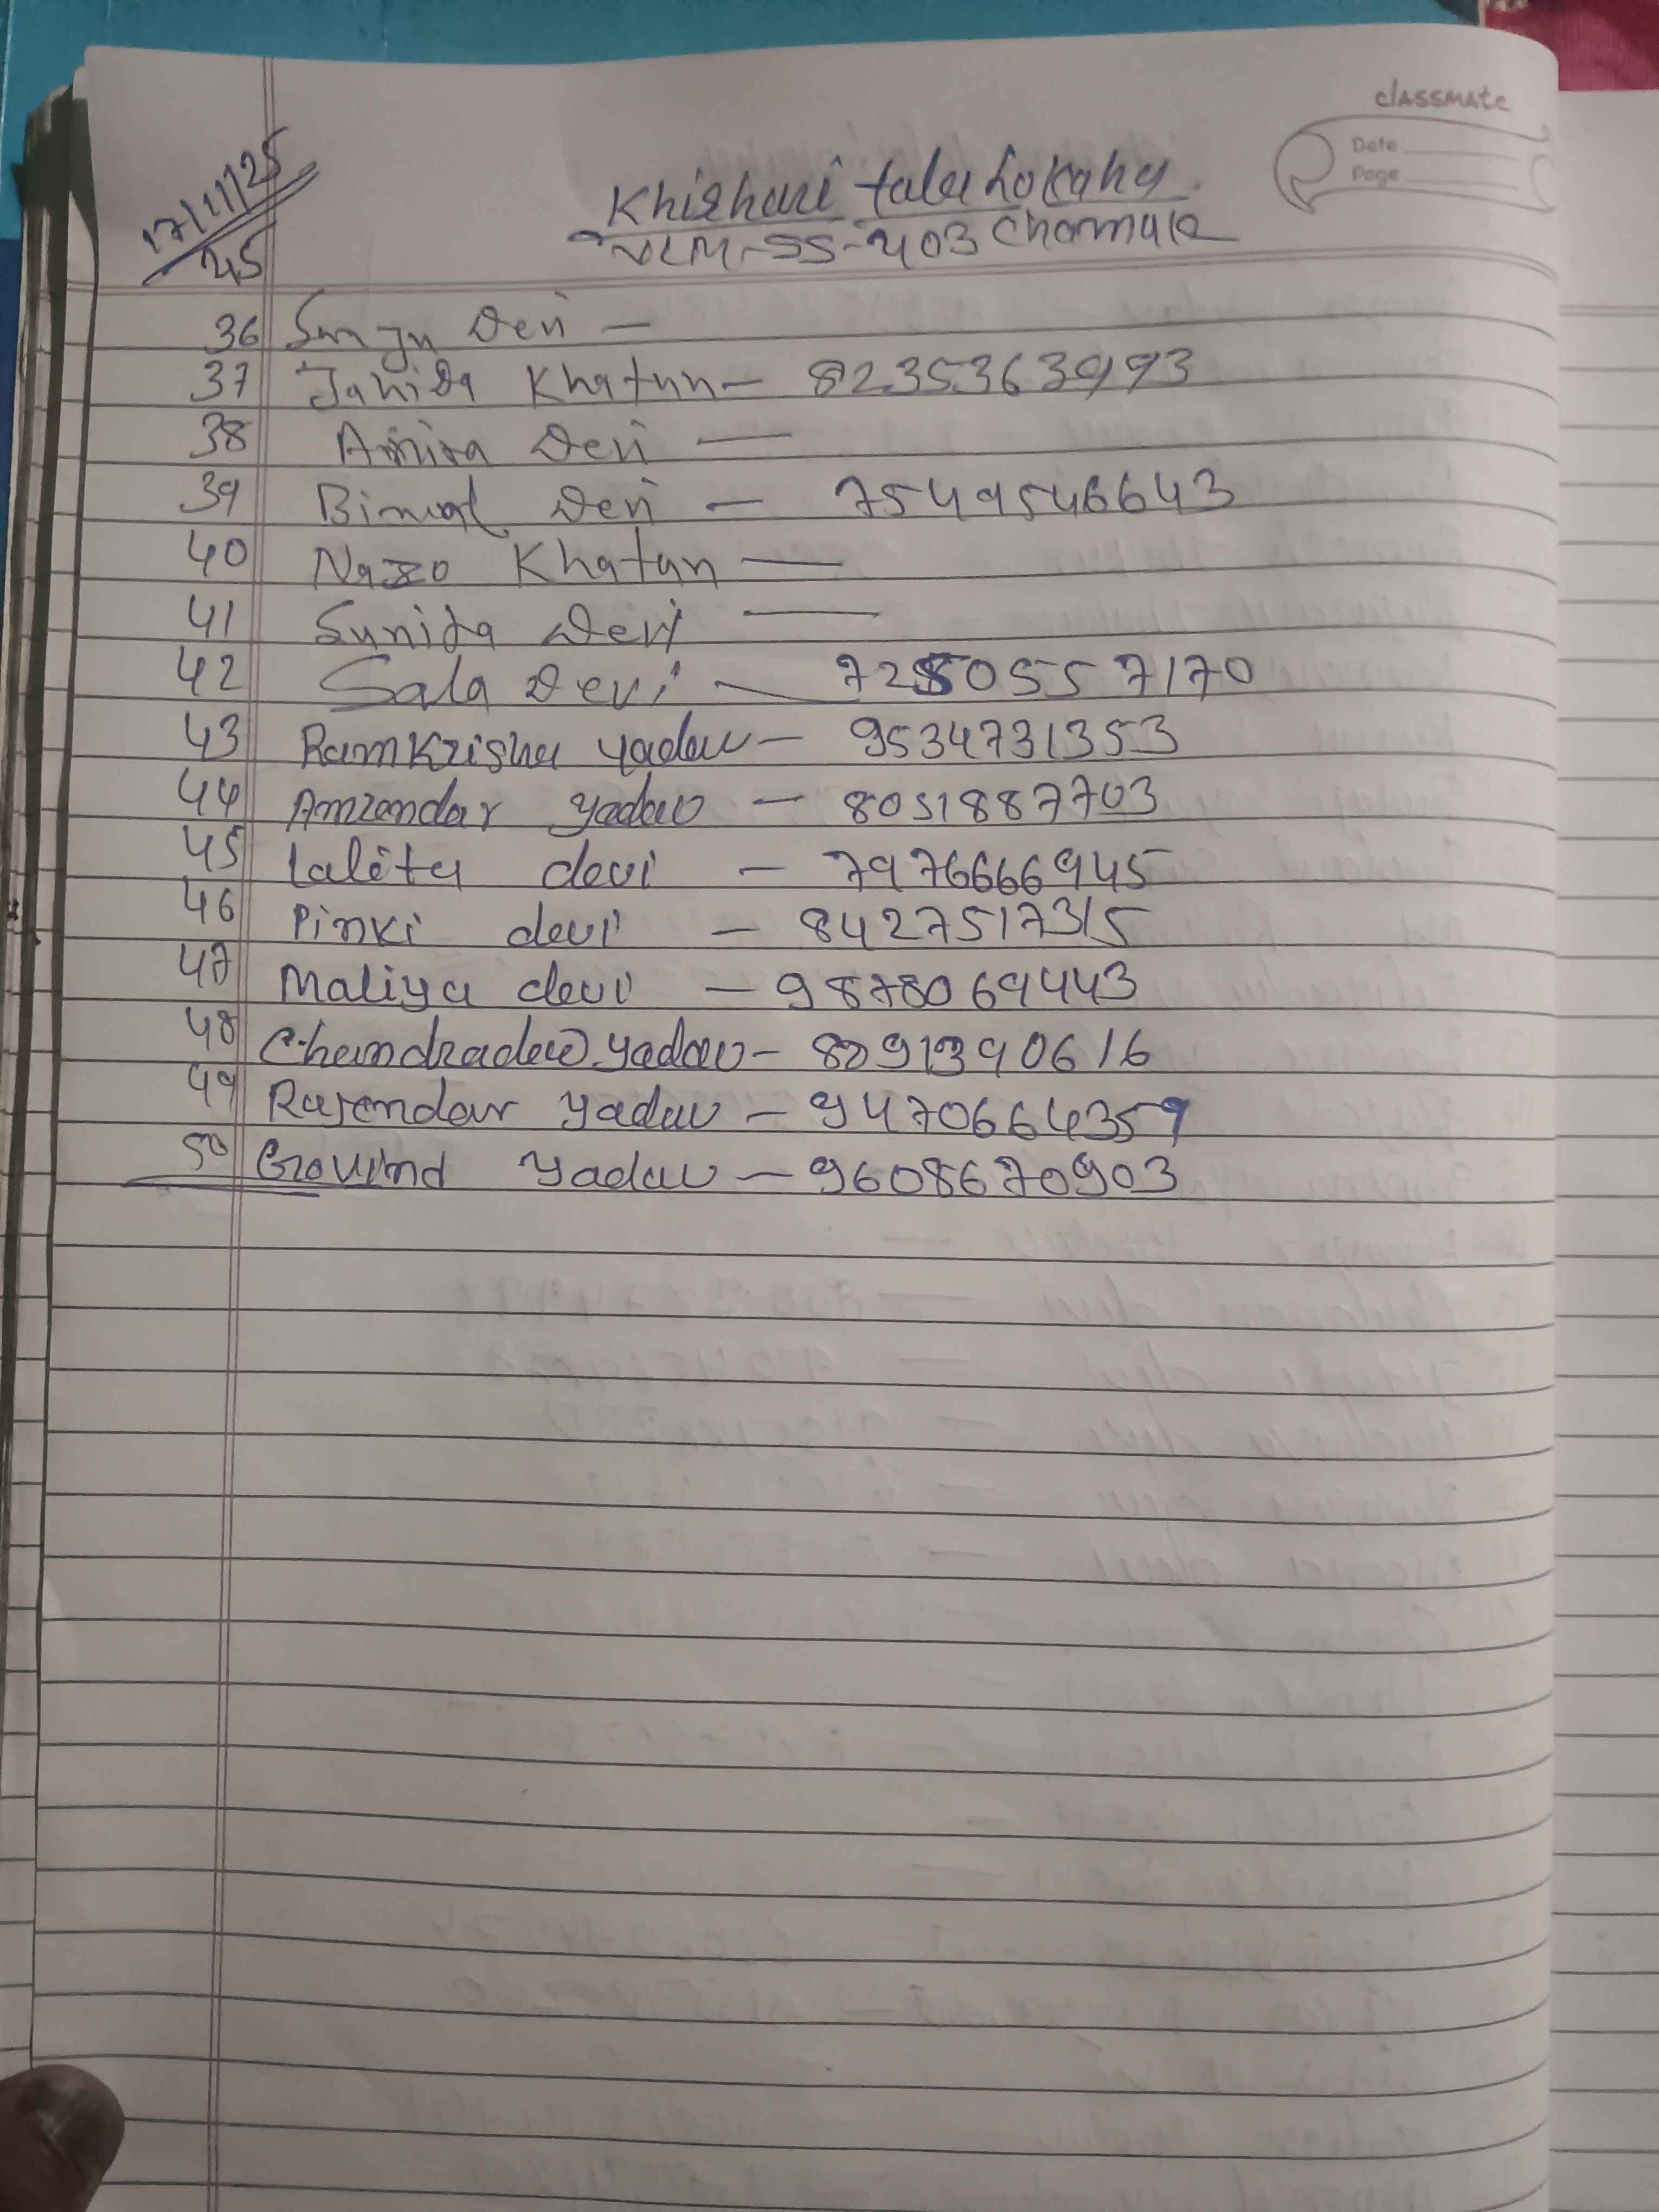 classmate
Date
Page
17/11/25
45
Khirhari tala Lokahy
VLM-SS-403 Charmula
36 Sanju Devi —
37 Jahida Khatun — 8235363993
38 Amira Devi —
39 Bimal Devi — 7549546643
40 Nazo Khatun —
41 Sunita Devi —
42 Sala Devi — 7250557170
43 Ramkrishna yadav — 9534731353
44 Amrendar yadav — 8051887703
45 lalita devi — 7976666945
46 Pinki devi — 8427517315
47 Maliya devi — 9878069443
48 Chandradev yadav —
49 Rajendar yadav — 9470664359
50 Govind yadav — 9608670903